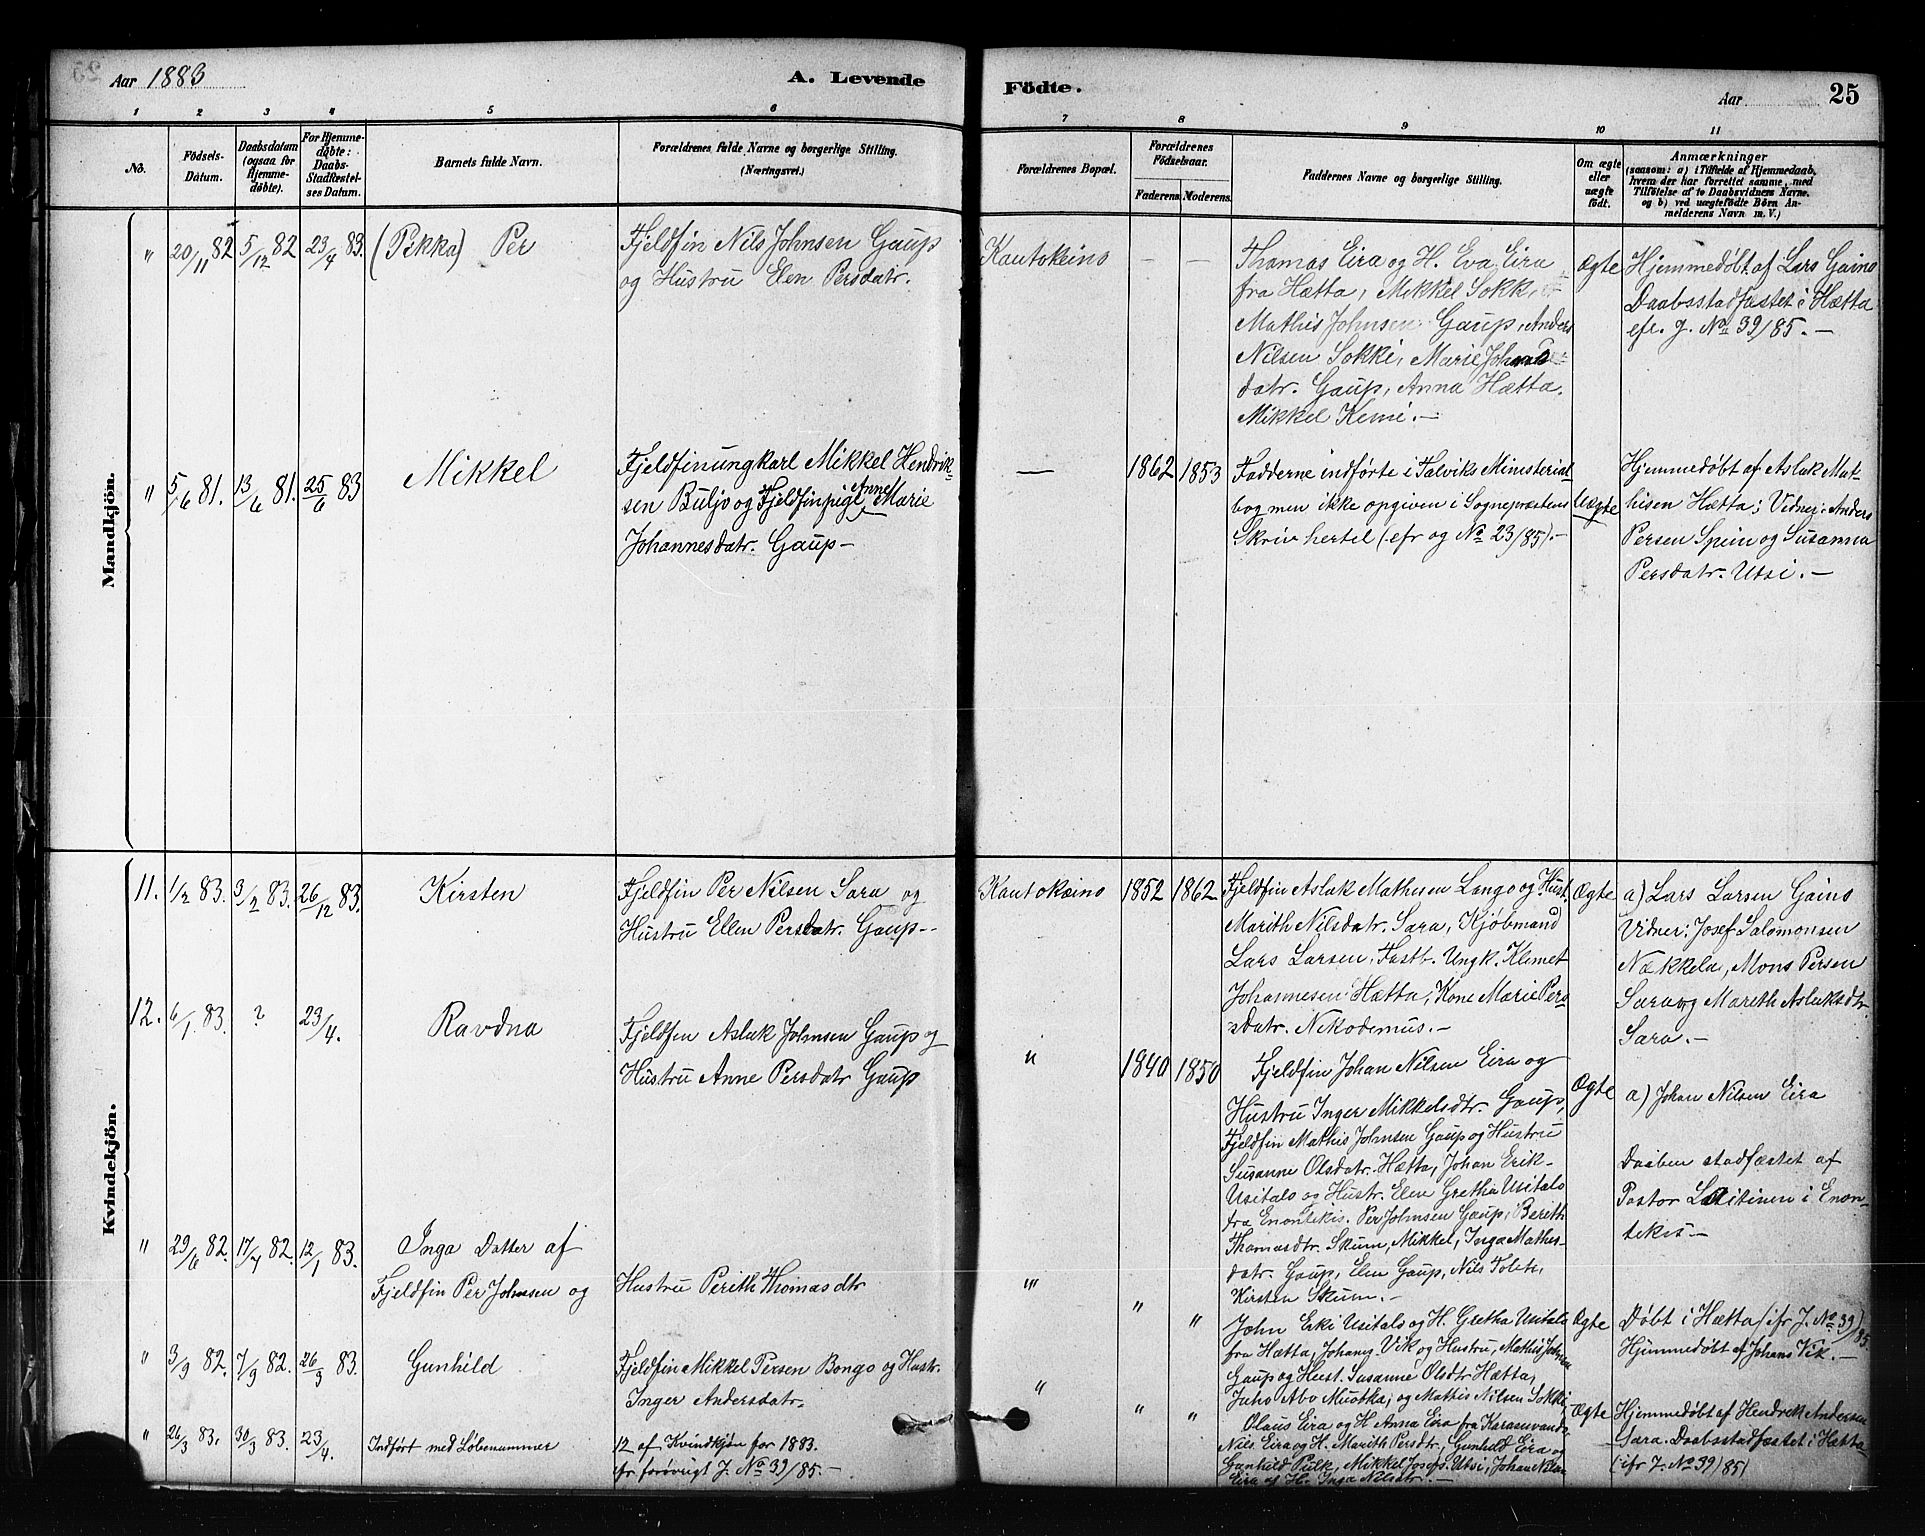 Aar 1883
A. Levende
Födte.
Aar
25
1 2 3 4 5 6 7 8 9 10 11
No.
Födsels-
Datum.
Daabsdatum
(ogsaa for
Hjemme-
døbte).
For Hjemme-
døbte:
Daabs-
Stadfæstel-
ses Datum.
Barnets fulde Navn.
Forældrenes fulde Navne og borgerlige Stilling.
(Næringsvei.)
Forældrenes Bopæl.
Forældrenes
Födselsaar.
Faderens.
Moderens.
Faddernes Navne og borgerlige Stilling.
Om ægte
eller
uægte
født.
Anmærkninger
(saasom: a) i Tilfælde af Hjemmedaab,
hvem der har forrettet samme, med
Tilföielse af to Daabsvidners Navne,
og b) ved uægtefödte Börn An-
melderens Navn m. V.)
Mandkjön.
" 20/11 82 5/12 82 23/4 83. (Pekka) Per
Fjeldfin Nils Johnsen Gaup
og Hustru Elen Persdatr.
Kautokeino — —
Thomas Eira og H. Eva Eira
fra Hætta, Mikkel Sokki,
Mathis Johnsen Gaup, Anders
Nilsen Sokki, Marie Johans
datr. Gaup, Anna Hætta.
Mikkel Kemi.—
Ægte
Hjemmedøbt af Lars Gaino
Daabsstadfæstet i Hætta
cfr. J. No 39/85.—
" 5/6 81. 13/6 81. 25/6 83 Mikkel
Fjeldfinungkarl Mikkel Hendrik-
sen Buljo og Fjeldfinpige Anne Marie
Johannesdatr. Gaup—
— 1862 1853
Fadderne indførte i Talviks Ministerial
bog men ikke opgiven i Sognepræstens
Skriv hertel (cfr og No 23/85).—
Uægte
Hjemmedøbt af Aslak Mat-
hisen Hætta; Vidner: Anders
Persen Spein og Susanna
Persdatr. Utsi.—
Kvindekjön.
11. 1/2 83. 3/2 83. 26/12 83. Kirsten
Fjeldfin Per Nilsen Sara og
Hustru Ellen Persdatr. Gaup--
Kautokeino 1852 1862
Fjeldfin Aslak Mathisen Lango og Hust.
Marith Nilsdatr. Sara, Kjøbmand
Lars Larsen, Fastb. Ungk. Klemet
Johannesen Hætta, Kone Marie Pers
datr. Nikodemus.—
Ægte
a) Lars Larsen Gaino
Vidner: Josef Salomonsen
Nækkela, Mons Persen
Sara og Mareth Aslaksdtr.
Sara.—
12. 6/1 83. ? 23/4. Ravdna
Fjeldfin Aslak Johnsen Gaup og
Hustru Anne Persdatr Gaup
" 1840 1850
Fjeldfin Johan Nilsen Eira og
Hustru Inger Mikkelsdtr. Gaup,
Fjeldfin Mathis Johnsen Gaup og Hustru
Susanne Olsdatr. Hætta, Johan Erik-
Usitalo og Hustr. Elen Gretha Usitalo
fra Enontekis. Per Johnsen Gaup, Bereth
Thomasdtr. Skum, Mikkel, Inga Mathis-
datr. Gaup, Elen Gaup, Nils
Kirsten Skum.—
Ægte
a) Johan Nilsen Eira
Daaben stadfæstet af
Pastor Laitinen i Enon-
tekis—
" 29/6 82. 17/7 82. 12/1 83. Inga Datter af
Fjeldfin Per Johnsen og Hustru Perith Thomasdtr
" " "
John Erki Usitalo og H. Gretha Usitalo
fra Hætta, Johans Vik og Hustru, Mathis Johnsen
Gaup og Hust. Susanne Olsdtr Hætta,
Juho Abo Muotka, og Mathis Nilsen Sokki
Ægte
Døbt i Hætta (cfr J. No 39/85
Hjemmedøbt af Johans Vik.—
" 3/9 82. 7/9 82. 26/3 83. Gunhild
Fjeldfin Mikkel Persen Bongo og Hustr.
Inger Andersdatr.
" " "
Olaus Eira og H Anna Eira fra Karasuvando,
Nils Eira og H. Marith Persdtr, Gunhild Eira og
Gunhild Pulk, Mikkel Josefs. Utsi, Johan Nilsen
Eira og H. Inga Nilsdtr.—
Ægte
Hjemmedøbt af Hendrik Andersen
Sara. Daabsstadfæstet i Hætta
(cfr J. No 39/85)
" 26/3 83. 30/3 83. 23/4. Indført med Løbenummer 12 af Kvindkjøn for 1883.
cfr forøvrigt J. No 39/85.—